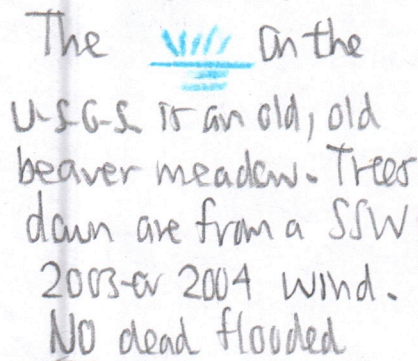 The on the
U.S.G.S. is an old, old
beaver meadow. Trees
down are from a SSW
2003 or 2004 wind.
NO dead flooded